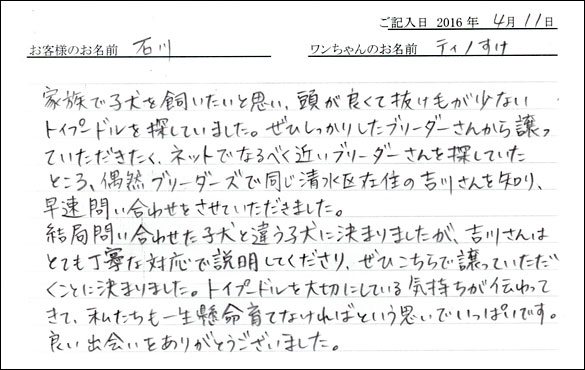 ご記入日 2016 年 4月 11日
お客様のお名前 石川 ワンちゃんのお名前 ティノすけ
家族で子犬を飼いたいと思い、頭が良くて抜け毛が少ない
トイプードルを探していました。ぜひしっかりしたブリーダーさんから譲っ
ていただきたく、ネットでなるべく近いブリーダーさんを探していた
ところ、偶然ブリーダーズで同じ清水区在住の吉川さんを知り、
早速問い合わせをさせていただきました。
結局問い合わせた子犬と違う子犬に決まりましたが、吉川さんは
とても丁寧な対応で説明してくださり、ぜひこちらで譲っていただ
くことに決まりました。トイプードルを大切にしている気持ちが伝わって
きて、私たちも一生懸命育てなければという思いでいっぱいです。
良い出会いをありがとうございました。